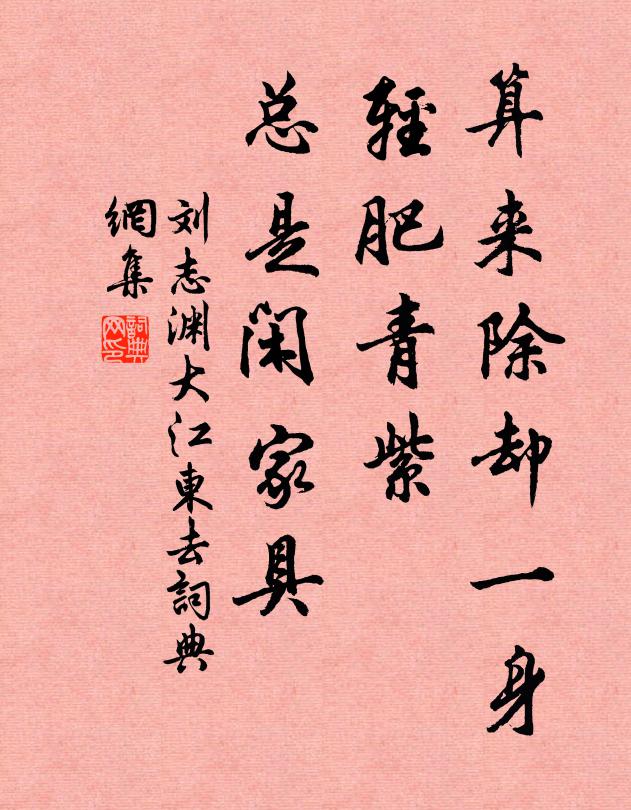 算来除却一身
轻肥青紫
总是闲家具
刘志渊大江東去詞典
網集
詞典
网印